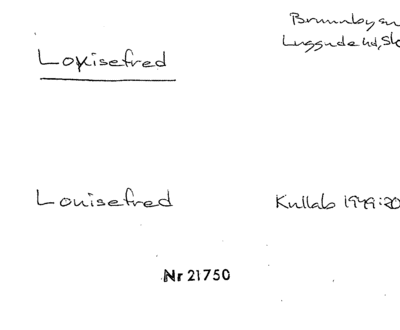 Brunnby sn
Louisefred
Luggude hd, Sk
Louisefred
Kullab 1949:20
Nr 21750